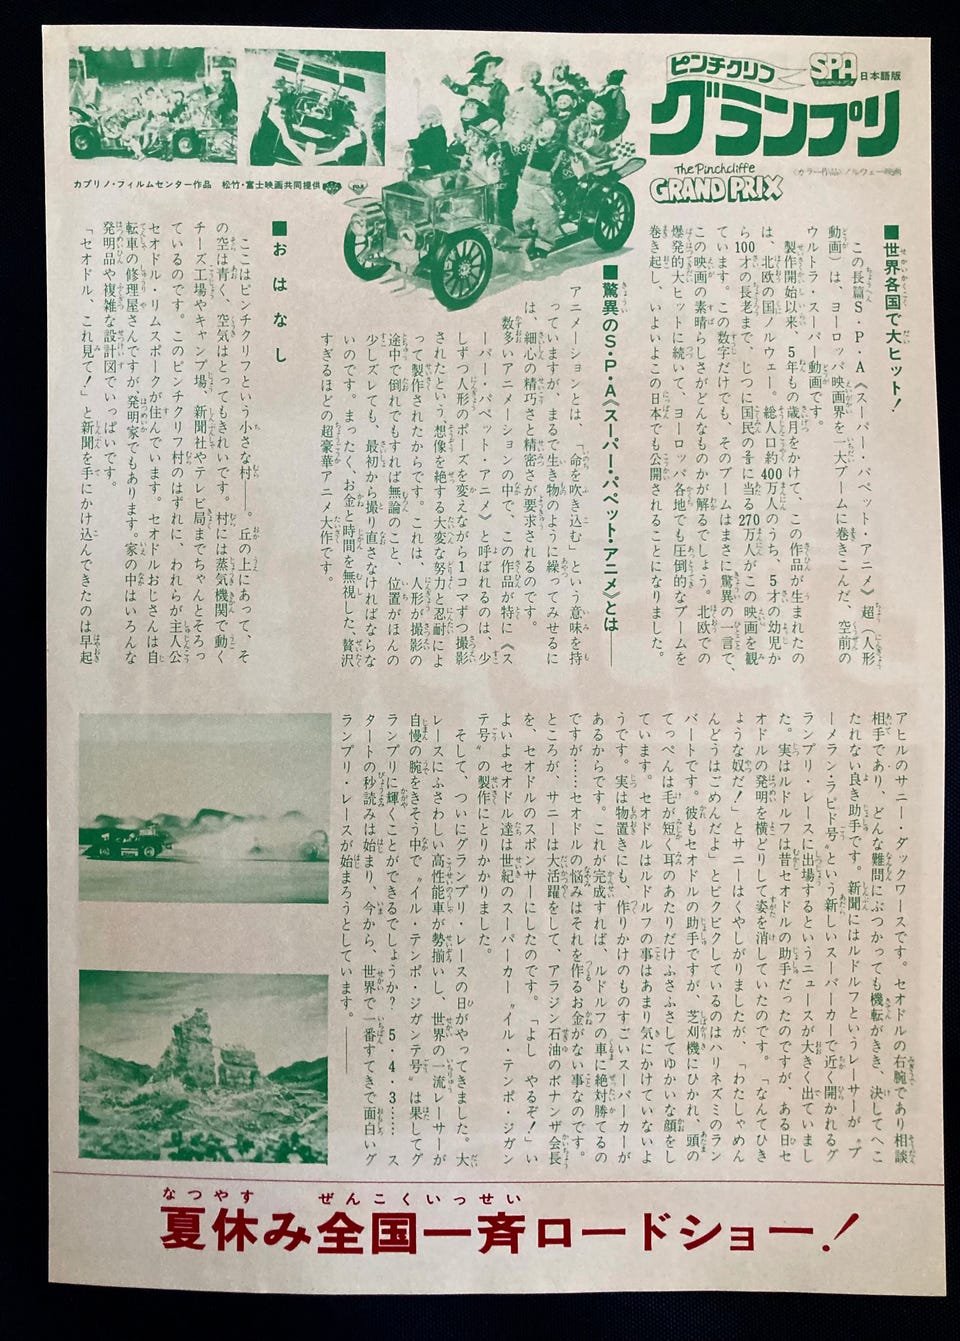 ピンチクリフ
グランプリ
SPA
日本語版
The Pinchcliffe
GRAND PRIX
〈カラー作品〉ノルウェー映画
カプリノ・フィルムセンター作品 松竹・富士映画共同提供
■世界各国で大ヒット!
この長篇S・P・A《スーパー・パペット・アニメ》超(人形
動画)は、ヨーロッパ映画界を一大ブームに巻きこんだ、空前の
ウルトラ・スーパー動画です。
製作開始以来、5年もの歳月をかけて、この作品が生まれたの
は、北欧の国ノルウェー。総人口約400万人のうち、5才の幼児か
ら100才の長老まで、じつに国民の⅔に当る270万人がこの映画を観
ています。この数字だけでも、そのブームはまさに驚異の一言で、
この映画の素晴らしさがどんなものかが解るでしょう。北欧での
爆発的大ヒットに続いて、ヨーロッパ各地でも圧倒的なブームを
巻き起し、いよいよこの日本でも公開されることになりました。
■驚異のS・P・A《スーパー・パペット・アニメ》とは——
アニメーションとは、「命を吹き込む」という意味を持
っていますが、まるで生き物のように繰ってみせるに
は、細心の精巧さと精密さが要求されるのです。
数多いアニメーションの中で、この作品が特に《ス
ーパー・パペット・アニメ》と呼ばれるのは、少
しずつ人形のポーズを変えながら1コマずつ撮影
されたという、想像を絶する大変な努力と忍耐によ
って製作されたからです。これは、人形が撮影の
途中で倒れでもすれば無論のこと、位置がほんの
少しズレても、最初から撮り直さなければならな
いのです。まったく、お金と時間を無視した、贅沢
すぎるほどの超豪華アニメ大作です。
■おはなし
ここはピンチクリフという小さな村——。丘の上にあって、そ
の空は青く、空気はとってもきれいです。村には蒸気機関で動く
チーズ工場やキャンプ場、新聞社やテレビ局までちゃんとそろっ
ているのです。このピンチクリフ村のはずれに、われらが主人公
セオドル・リムスポークが住んでいます。セオドルおじさんは自
転車の修理屋さんですが発明家でもあります。家の中はいろんな
発明品や複雑な設計図でいっぱいです。
「セオドル、これ見て!」と新聞を手にかけ込んできたのは早起
アヒルのサニー・ダックワースです。セオドルの右腕であり相談
相手であり、どんな難問にぶつかっても機転がきき、決してへこ
たれない良き助手です。新聞にはルドルフというレーサーが〝ブ
ーメラン・ラピド号〟という新しいスーパーカーで近く開かれるグ
ランプリ・レースに出場するというニュースが大きく出ていまし
た。実はルドルフは昔セオドルの助手だったのですが、ある日セ
オドルの発明を横どりして姿を消していたのです。「なんてひき
ょうな奴だ!」とサニーはくやしがりましたが、「わたしゃめん
んどうはごめんだよ」とビクビクしているのはハリネズミのラン
バートです。彼もセオドルの助手ですが、芝刈機にひかれ、頭の
てっぺんは毛が短く耳のあたりだけふさふさしてゆかいな顔をし
ています。セオドルはルドルフの事はあまり気にかけていないよ
うです。実は物置きにも、作りかけのものすごいスーパーカーが
あるからです。これが完成すれば、ルドルフの車に絶対勝てるの
ですが……セオドルの悩みはそれを作るお金がない事なのです。
ところが、サニーは大活躍をして、アラジン石油のボナンザ会長
を、セオドルのスポンサーにしたのです。「よし やるぞ!」い
よいよセオドル達は世紀のスーパーカー〝イル・テンポ・ジガン
テ号〟の製作にとりかかりました。
そして、ついにグランプリ・レースの日がやってきました。大
レースにふさわしい高性能車が勢揃いし、世界の一流レーサーが
自慢の腕をきそう中で〝イル・テンポ・ジガンテ号〟は果してグ
ランプリに輝くことができるでしょうか? 5・4・3…… ス
タートの秒読みは始まり、今から、世界で一番すてきで面白いグ
ランプリ・レースが始まろうとしています。——
なつやす ぜんこくいっせい
夏休み全国一斉ロードショー!